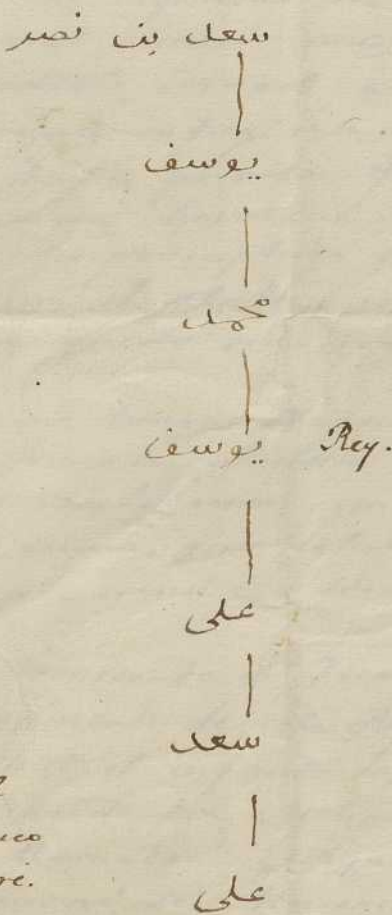 سعد بن نصر
يوسف
محمد
يوسف Rey.
على
سعد
على